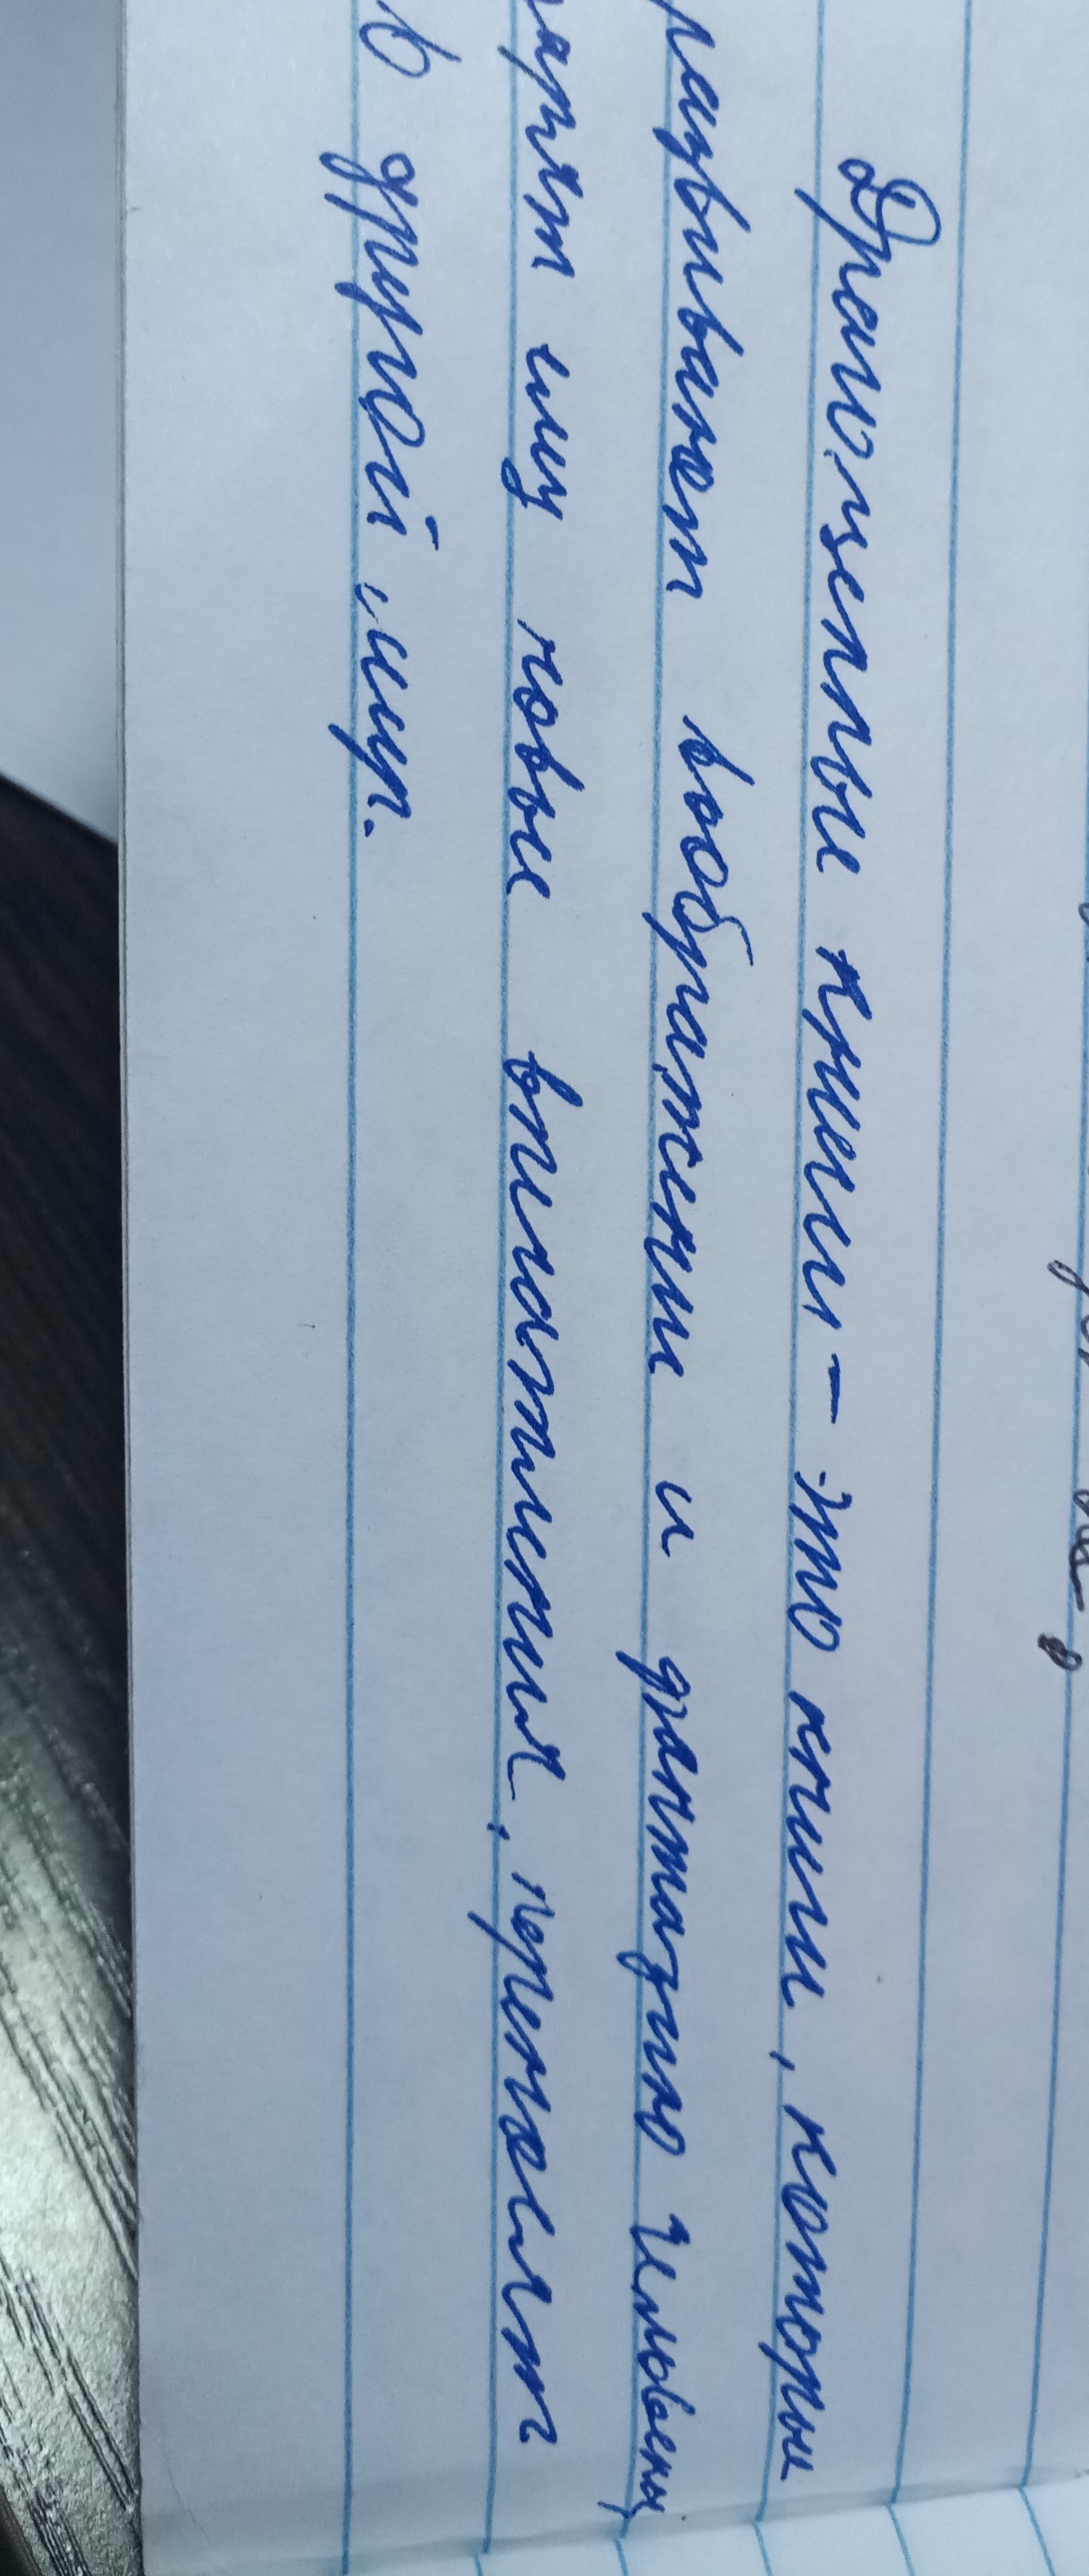 Драгоценные книги – это книги, которые
развивают воображении и фантазию человека,
дарят ему новые впичатления, переносят
в другой мир.